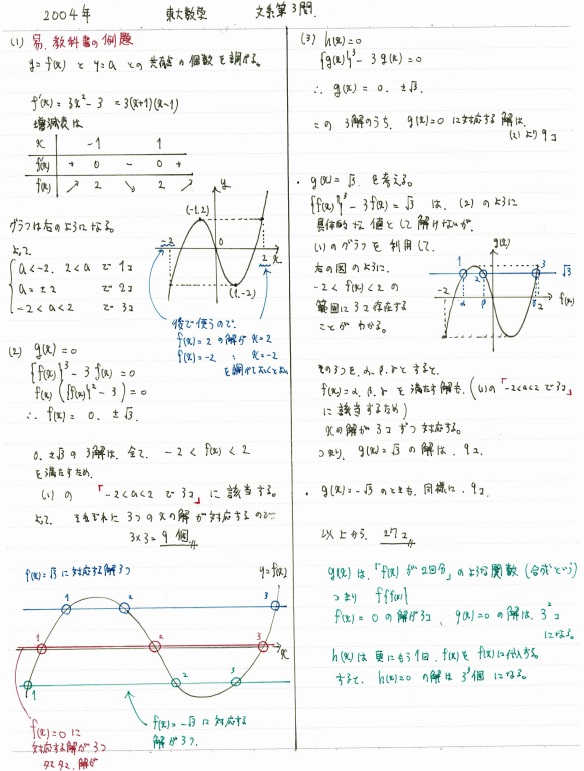 2004年 東大数学 文系第3問.
(1) 易. 教科書の例題
y=f(x) と y=a との共有点の個数を調べる。
f'(x) = 3x²-3 = 3(x+1)(x-1)
増減表は
x -1 1
f'(x) + 0 - 0 +
f(x) ↗ 2 ↘ 2 ↗
グラフは右のようになる。
よって
a<-2. 2<a で 1コ
a=±2 で 2コ
-2<a<2 で 3コ
y
(-1,2)
-2 0 2 x
(1,-2)
後で使うので.
f(x)=2 の解が x=2
f(x)=-2 〃 x=-2
を調べておくとよい
(2) g(x)=0
{f(x)}³-3f(x)=0
f(x)({f(x)}²-3)=0
∴ f(x)=0. ±√3.
0. ±√3 の 3解は. 全て. -2<f(x)<2
を満たすため.
(1) の 「-2<a<2 で 3コ」 に該当する。
よって それぞれに 3つの xの解が対応するので
3×3=9個
f(x)=√3に対応する解3つ
y=f(x)
1 2
1 2 3 x
1 2 3
f(x)=0に
対応する解が3つ
f(x)=-√3 に対応する
解が3つ.
(3) h(x)=0
{g(x)}³-3g(x)=0
∴ g(x)=0. ±√3.
この 3解のうち. g(x)=0 に対応する解は.
(2)より 9コ
・ g(x)=√3. を考える。
{f(x)}³-3f(x)=√3 は. (2)のように
具体的な値として解けないが.
(1)のグラフを利用して.
右の図のように.
-2<f(x)<2 の
範囲に3つ存在する
ことがわかる。
g(x)
1 2 3 √3
-2 α β γ 2 f(x)
その3つを. α. β. γ とすると.
f(x)=α. β. γ を満たす解も. ((1)の「-2<a<2で3コ」
に該当するため)
xの解が3コずつ対応する。
つまり. g(x)=√3 の解は. 9コ.
・ g(x)=-√3 のときも. 同様に. 9コ.
以上から. 27コ
g(x)は.「f(x)が2回分」のような関数(合成という)
つまり f{f(x)}
f(x)=0 の解が3コ、g(x)=0の解は. 3²コ
になる。
h(x)は更にもう1回. f(x)をf(x)に代入する。
すると. h(x)=0 の解は 3³個になる。